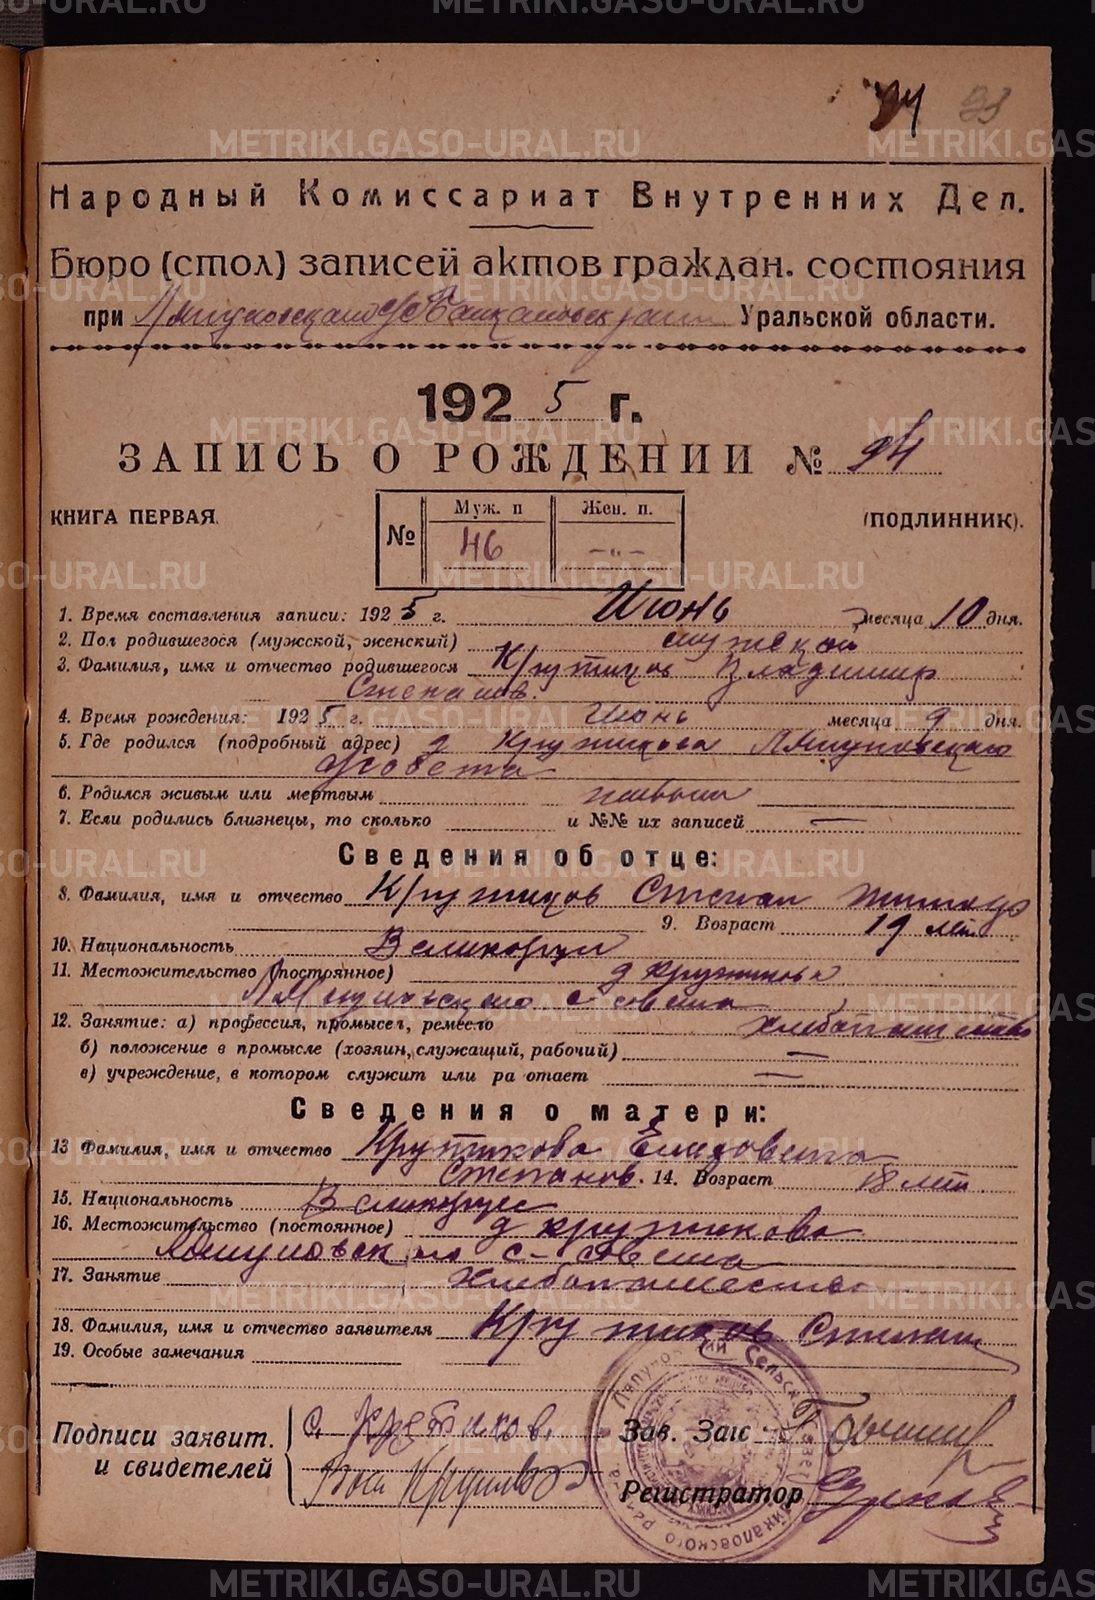 94 93
METRIKI.GASO-URAL.RU
Народный Комиссариат Внутренних Дел.
Бюро (стол) записей актов граждан. состояния
при Уральской области.
1925 г.
ЗАПИСЬ О РОЖДЕНИИ № 94
КНИГА ПЕРВАЯ. № Муж. п Жен. п. (ПОДЛИННИК).
46 -„-
1. Время составления записи: 1925 г. Июнь месяца 10 дня.
2. Пол родившегося (мужской, женский) мужской
3. Фамилия, имя и отчество родившегося Крутиков Владимир
Степанов.
4. Время рождения: 1925 г. Июнь месяца 9 дня.
5. Где родился (подробный адрес) д Крутикова Ляпуновского
с/совета
6. Родился живым или мертвым живым
7. Если родились близнецы, то сколько и №№ их записей —
Сведения об отце:
8. Фамилия, имя и отчество Крутиков Степан
9. Возраст 19 лет
10. Национальность Великорусс
11. Местожительство (постоянное) д Крутикова
Ляпуновского с совета
12. Занятие: а) профессия, промысел, ремесло хлебопашество
б) положение в промысле (хозяин, служащий, рабочий) —
в) учреждение, в котором служит или ра отает —
Сведения о матери:
13 Фамилия, имя и отчество Крутикова Елизовета
Степанов. 14. Возраст 18 лет
15. Национальность Великорусс
16. Местожительство (постоянное) д Крутикова
Ляпуновского с-совета
17. Занятие Хлебопашество
18. Фамилия, имя и отчество заявителя Крутиков Степан
19. Особые замечания
Подписи заявит. и свидетелей
С. Крутиков.
Зав. Загс
Регистратор